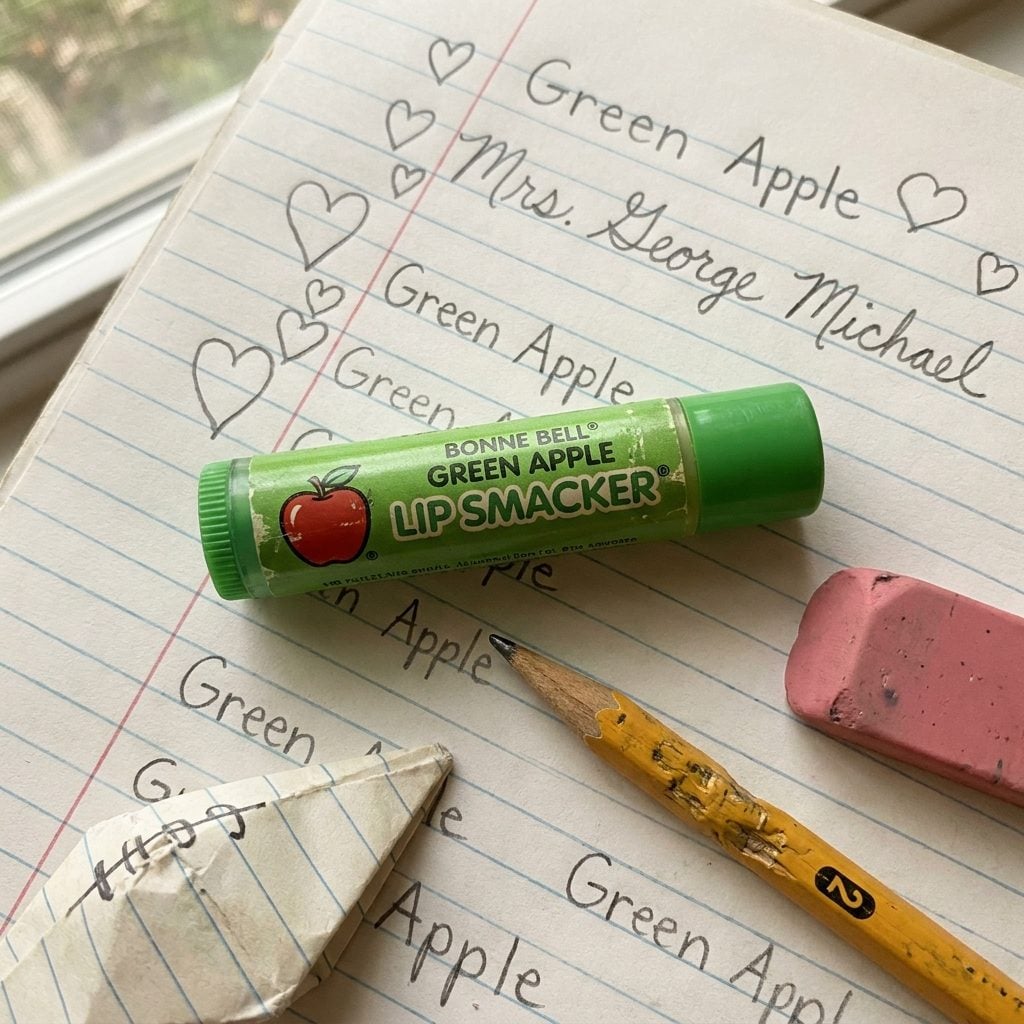 Green Apple
Mrs. George Michael
Green Apple
Green
BONNE BELL®
GREEN APPLE
LIP SMACKER®
Apple
Green
Apple
Green Appl
2